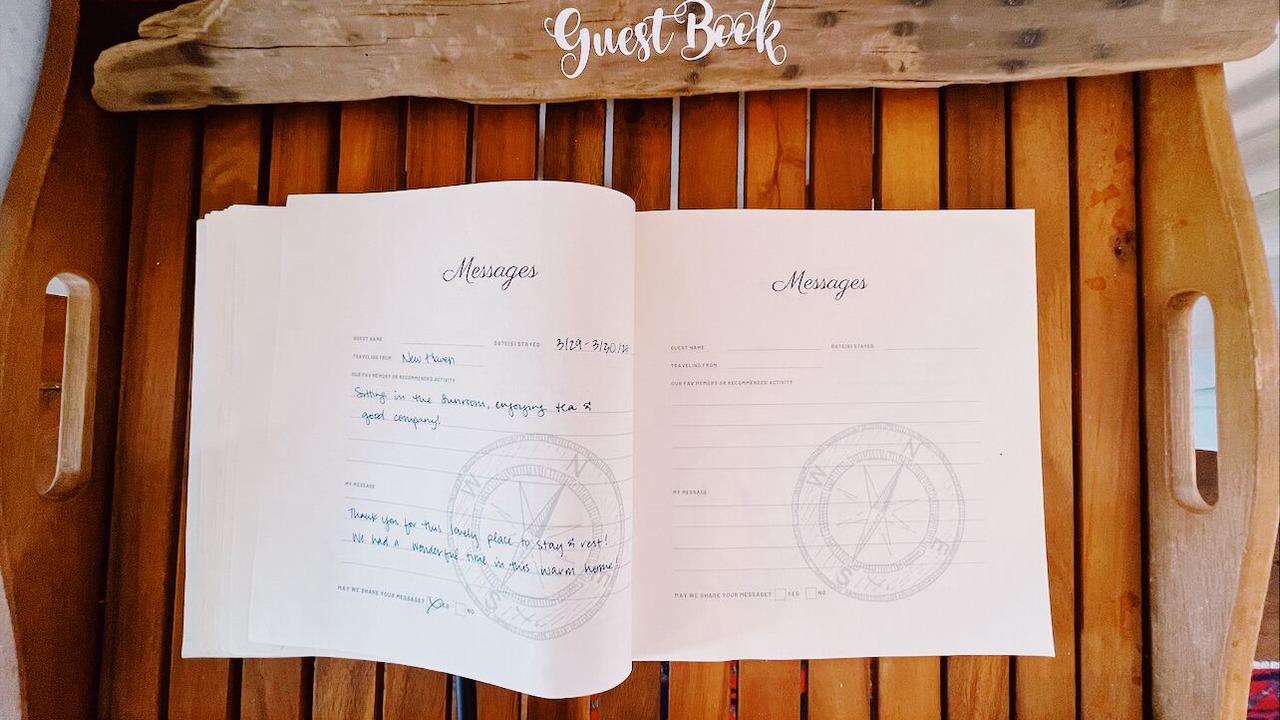 Guest Book
Messages
GUEST NAME DATE(S) STAYED 3/29-3/30/
TRAVELING FROM New Haven
OUR FAV MEMORY OR RECOMMENDED ACTIVITY
Sitting in the sunroom, enjoying tea &
good company!
MY MESSAGE
Thank you for this lovely place to stay & rest!
We had a wonderful time in this warm home!
MAY WE SHARE YOUR MESSAGE? YES NO
N
W
E
S
Messages
GUEST NAME DATE(S) STAYED
TRAVELING FROM
OUR FAV MEMORY OR RECOMMENDED ACTIVITY
MY MESSAGE
MAY WE SHARE YOUR MESSAGE? YES NO
N
W
E
S